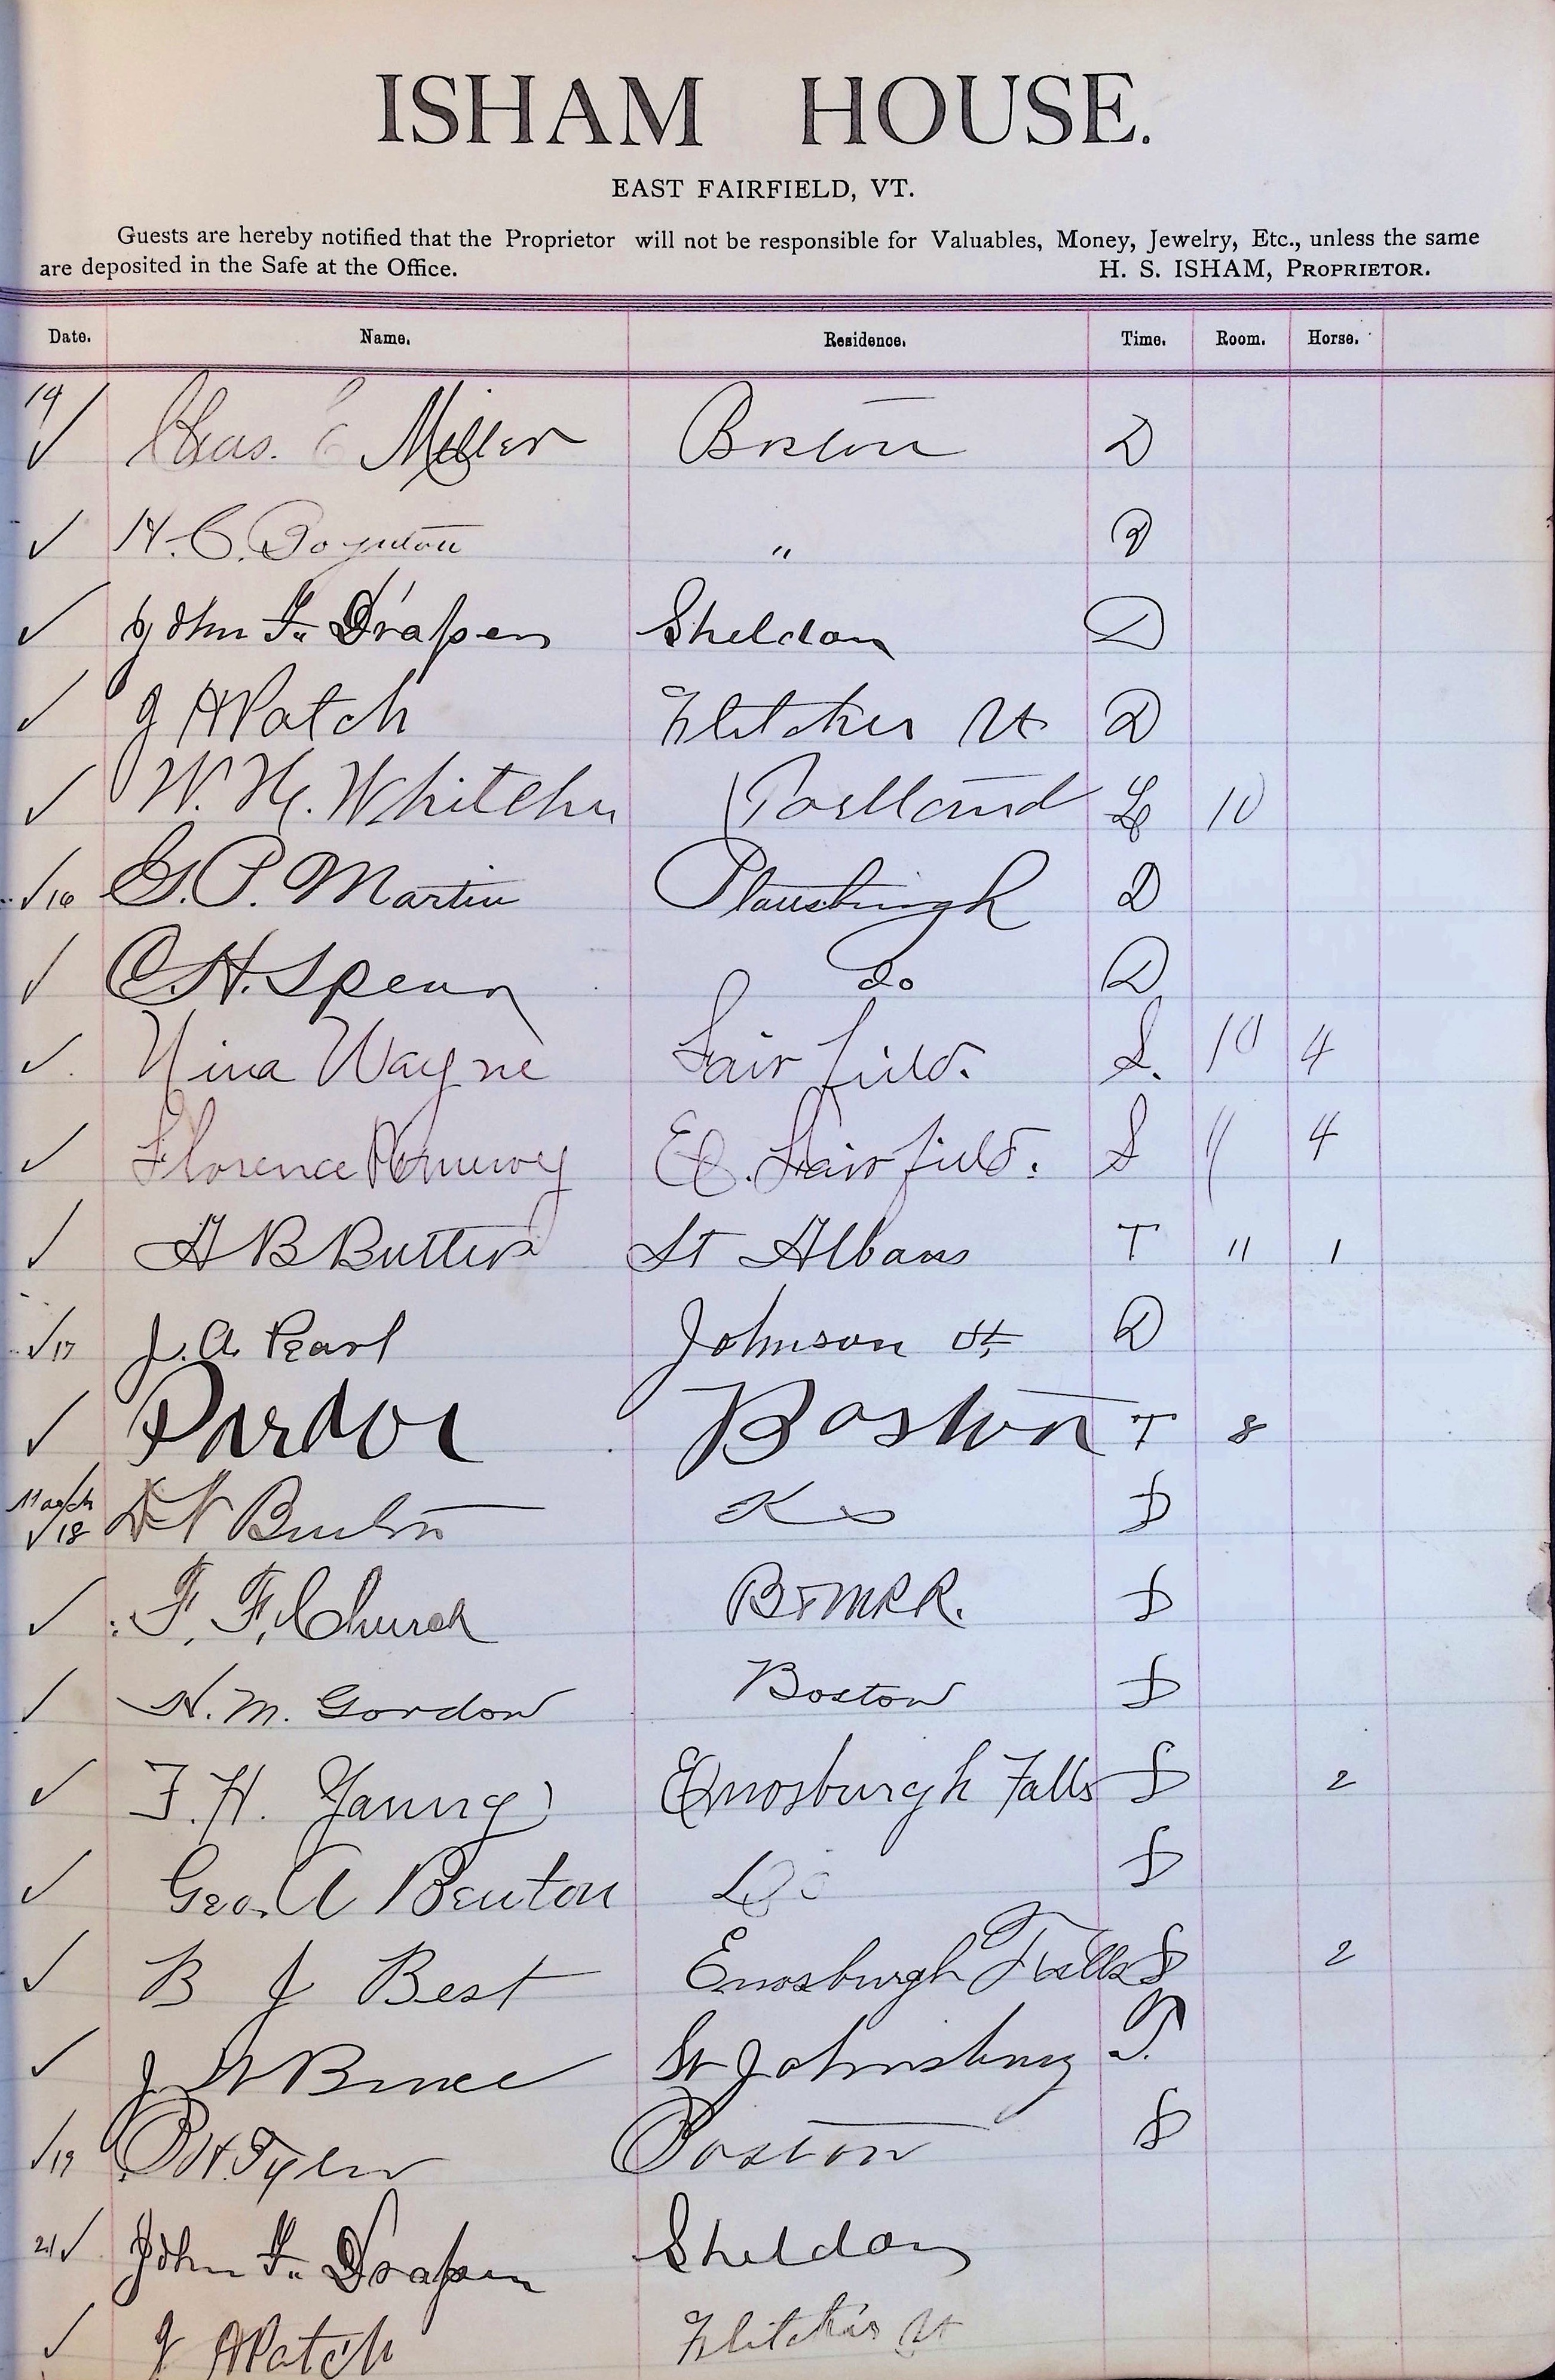 ISHAM HOUSE.
EAST FAIRFIELD, VT.
Guests are hereby notified that the Proprietor will not be responsible for Valuables, Money, Jewelry, Etc., unless the same
are deposited in the Safe at the Office. H. S. ISHAM, PROPRIETOR.
Date. Name. Residence. Time. Room. Horse.
14 ✓ Chas. E Miller Boston D
✓ H. C. Boynton " D
✓ John F. Draper Sheldon D
✓ J A Patch Fletcher Vt D
✓ W. H. Whitcher Portland L 10
✓ 16 G. P. Martin Plattsburgh D
✓ C. H. Spear do D
✓ Nina Wayne Fairfield. S. 10 4
✓ Florence Pomeroy E. Fairfield. S 11 4
✓ A B Butler St Albans T 11 1
✓ 17 J. A. Pearl Johnson Vt D
✓ Boston T 8
March ✓ 18 D
✓ F. F. Church B & M R R. D
✓ H. M. Gordon Boston D
✓ F. H. Enosburgh Falls D 2
✓ Geo. A Benton Do D
✓ B J Best Enosburgh Falls D 2
✓ J W Bruce St Johnsbury T.
✓ 19 B H Tyler Boston D
21 ✓ John F. Draper Sheldon
✓ J A Patch Fletcher Vt